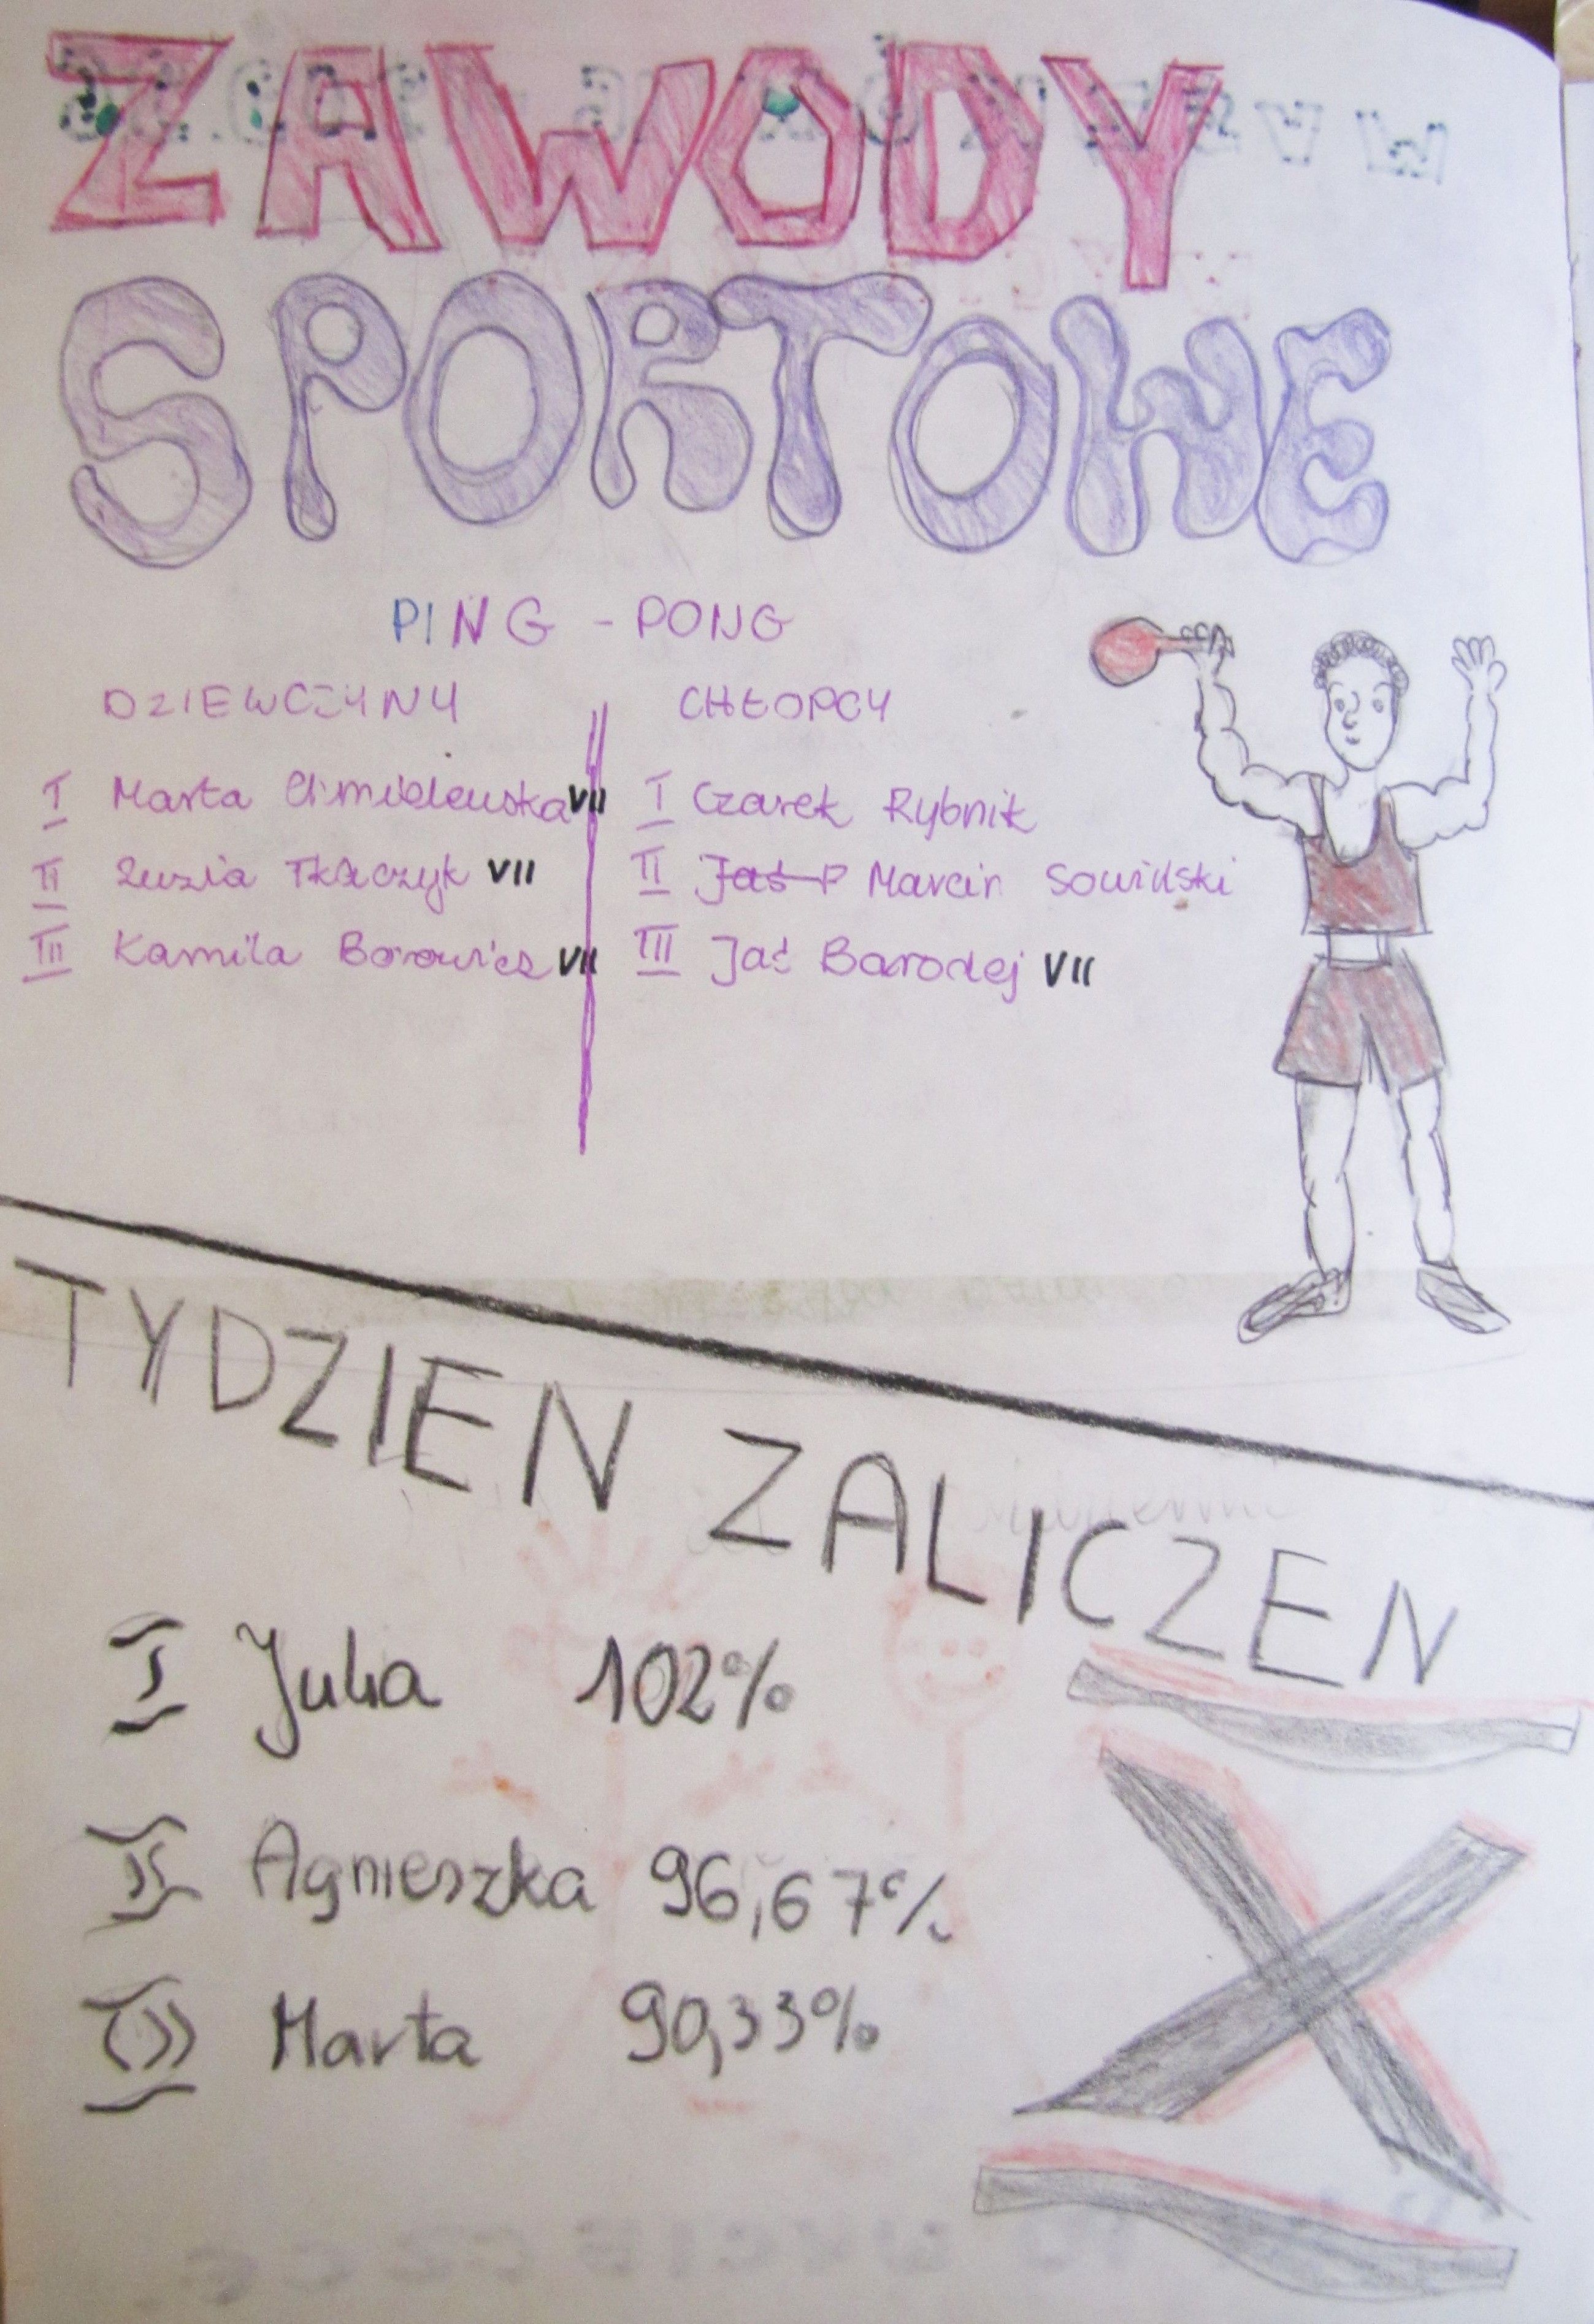 ZAWODY
SPORTOWE
PING - PONG
DZIEWCZYNY
I Marta Chmielewska VII
II Zuzia Tkaczyk VII
III Kamila Borowicz VII
CHŁOPCY
I Czarek Rybnik
II Jaś P Marcin Sowiński
III Jaś Barodej VII
TYDZIEN ZALICZEN
I Julia 102%
II Agnieszka 96,67%
III Marta 90,33%
X